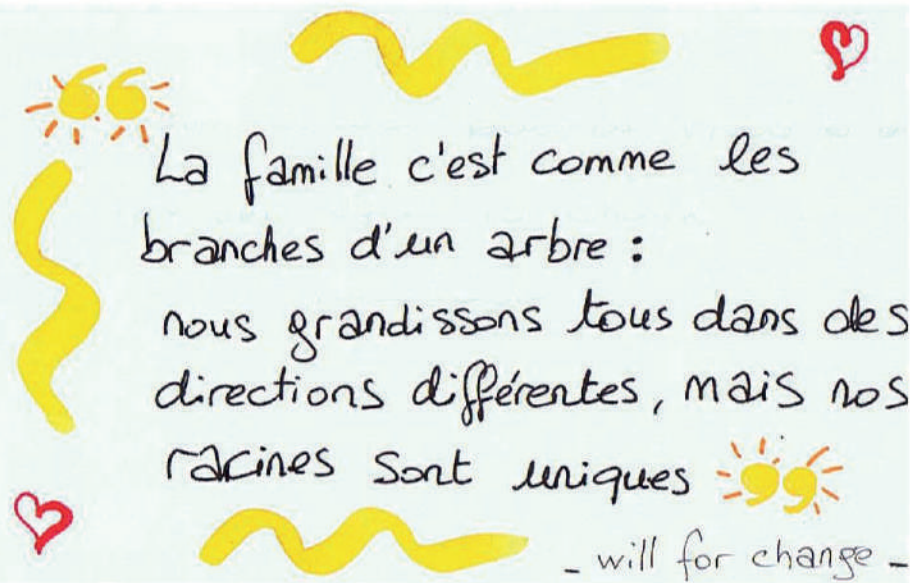 “ La famille c'est comme les
branches d'un arbre :
nous grandissons tous dans des
directions différentes, mais nos
racines sont uniques ”
- will for change -